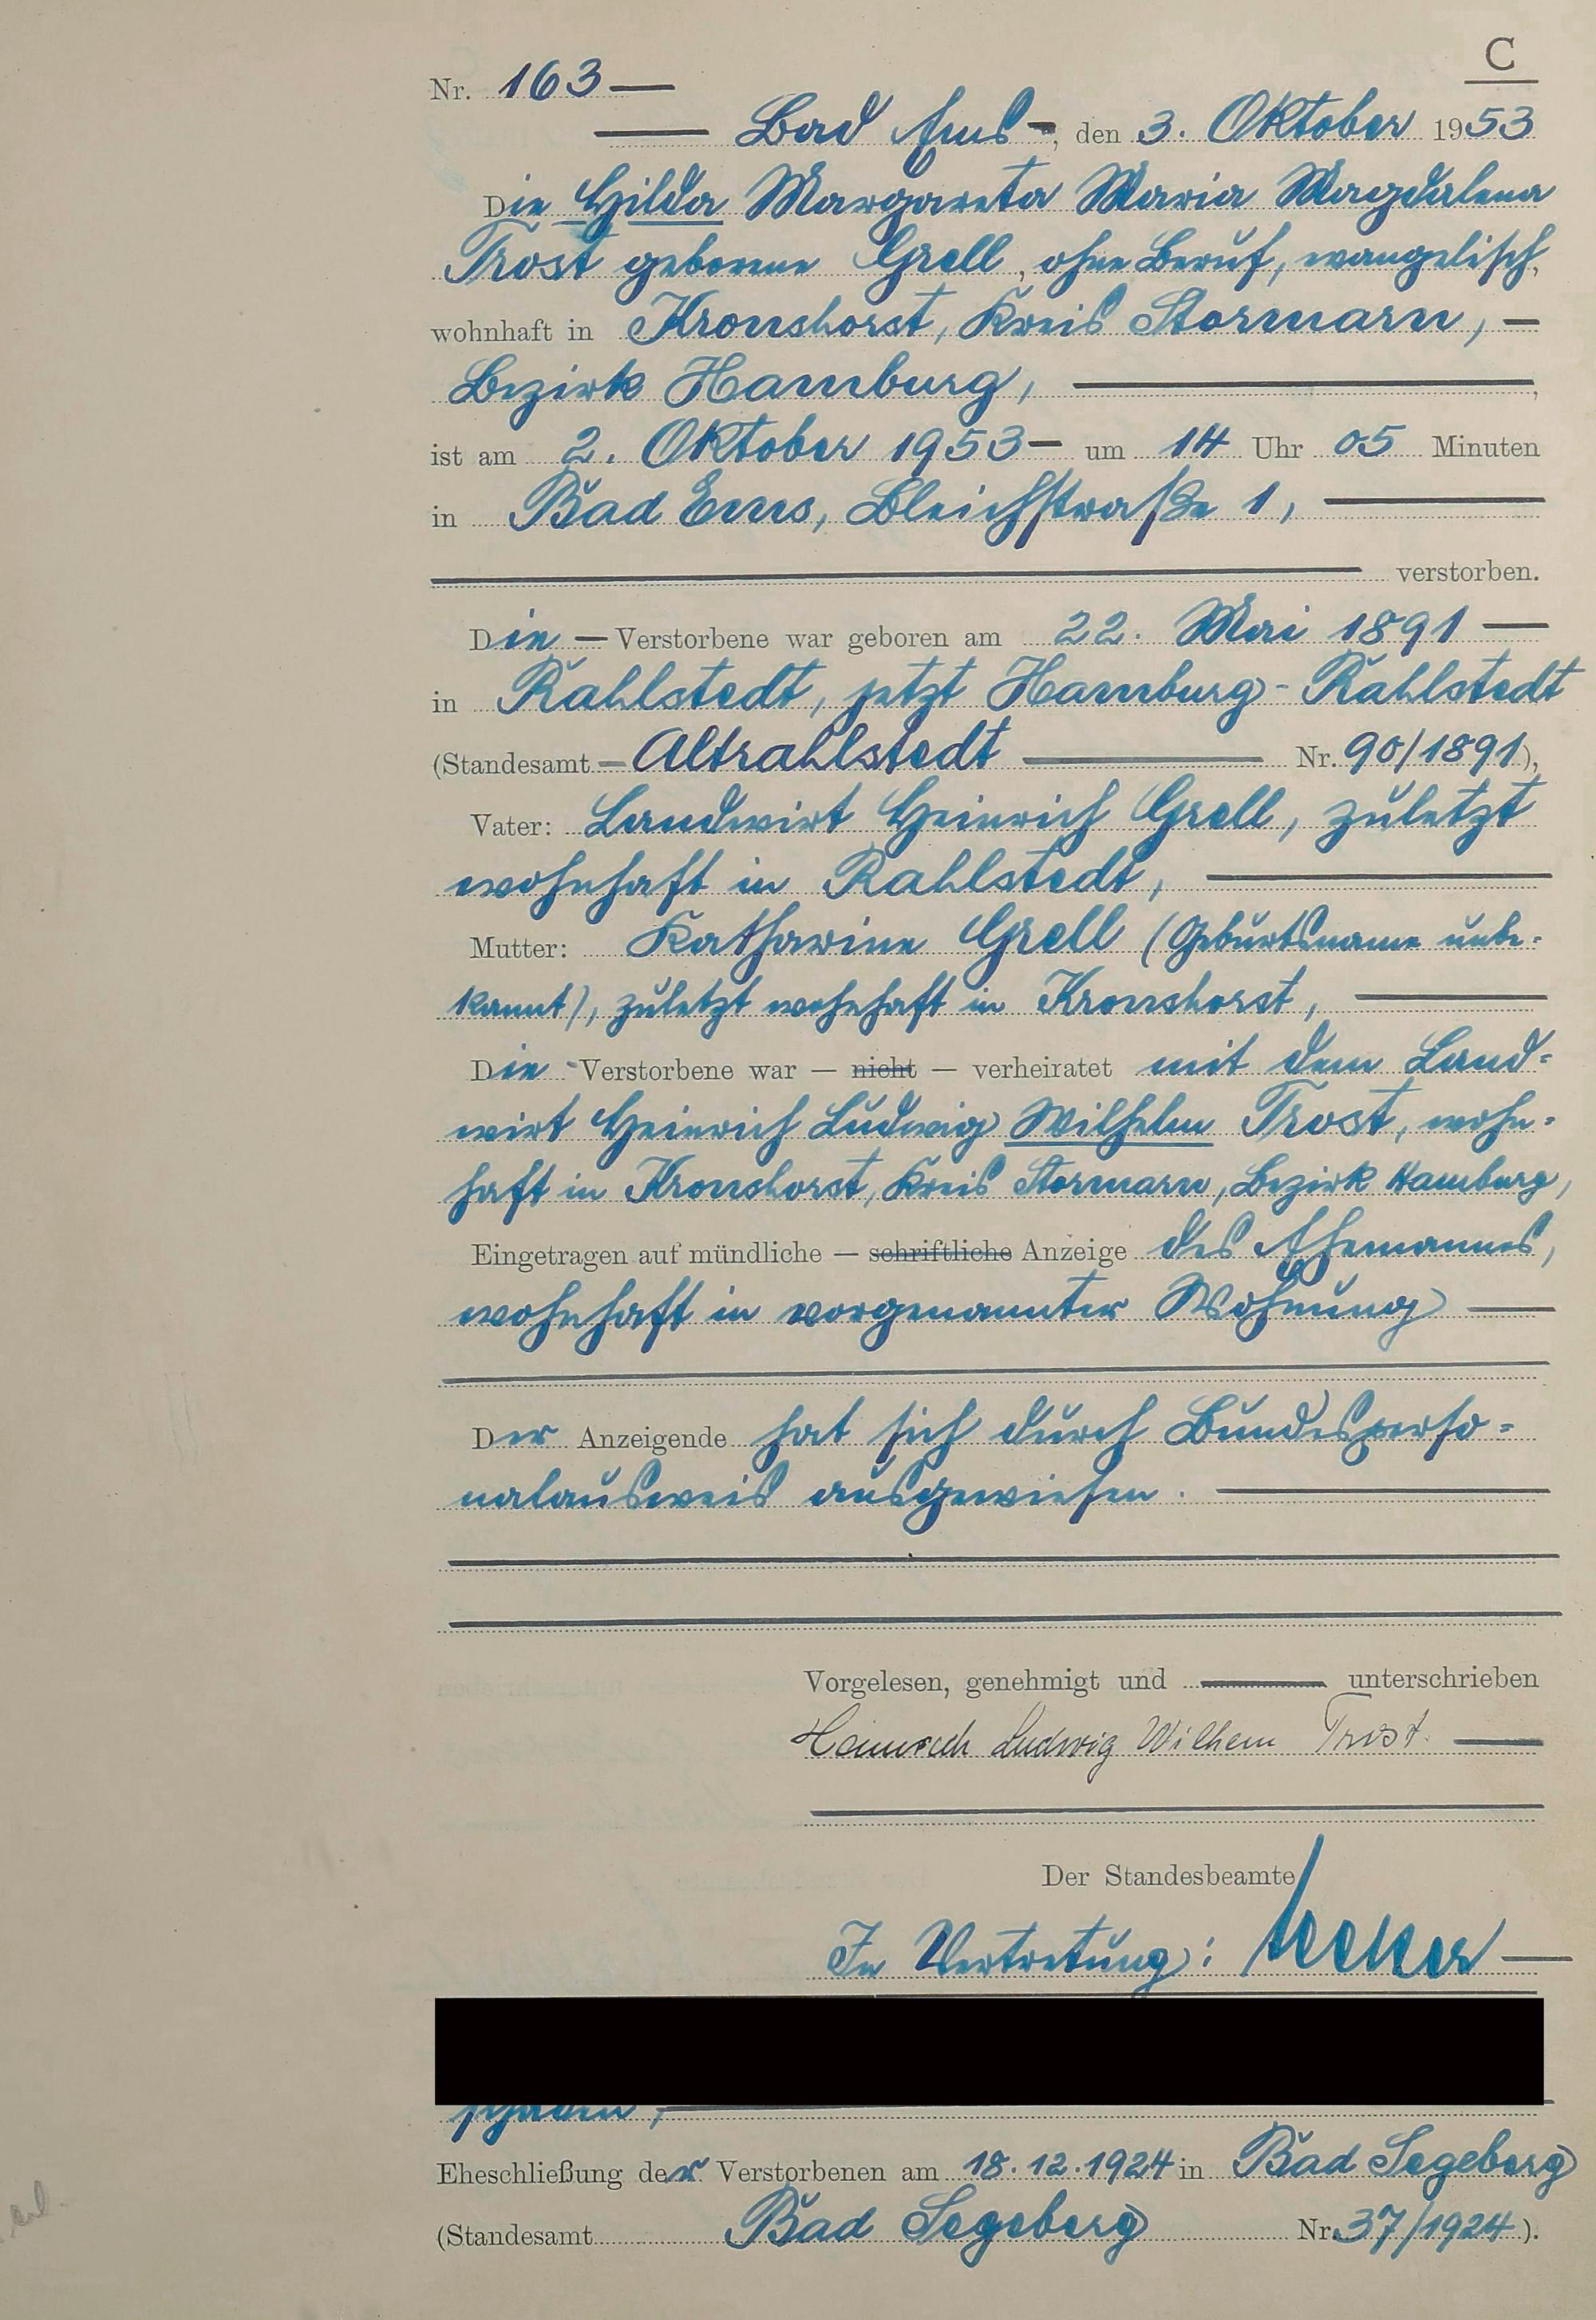 C
Nr. 163
Bad Ems, den 3. Oktober 1953
Die Hilda Margareta Maria Magdalena
Trost geborene Grell, ohne Beruf, evangelisch,
wohnhaft in Kronshorst, Kreis Stormarn,
Bezirk Hamburg,
ist am 2. Oktober 1953 um 14 Uhr 05 Minuten
in Bad Ems, Bleichstraße 1,
verstorben.
Die Verstorbene war geboren am 22. Mai 1891
in Rahlstedt, jetzt Hamburg-Rahlstedt
(Standesamt Altrahlstedt Nr. 90/1891),
Vater: Landwirt Heinrich Grell, zuletzt
wohnhaft in Rahlstedt,
Mutter: Katharine Grell (Geburtsname unbe-
kannt), zuletzt wohnhaft in Kronshorst,
Die Verstorbene war — nicht — verheiratet mit dem Land-
wirt Heinrich Ludwig Wilhelm Trost, wohn-
haft in Kronshorst, Kreis Stormarn, Bezirk Hamburg,
Eingetragen auf mündliche — schriftliche Anzeige des Ehemannes,
wohnhaft in vorgenannter Wohnung
Der Anzeigende hat sich durch Bundesperso-
nalausweis ausgewiesen.
Vorgelesen, genehmigt und unterschrieben
Heinrich Ludwig Wilhem Trost.
Der Standesbeamte
In Vertretung:
Eheschließung der Verstorbenen am 18.12.1924 in Bad Segeberg
(Standesamt Bad Segeberg Nr. 37/1924).